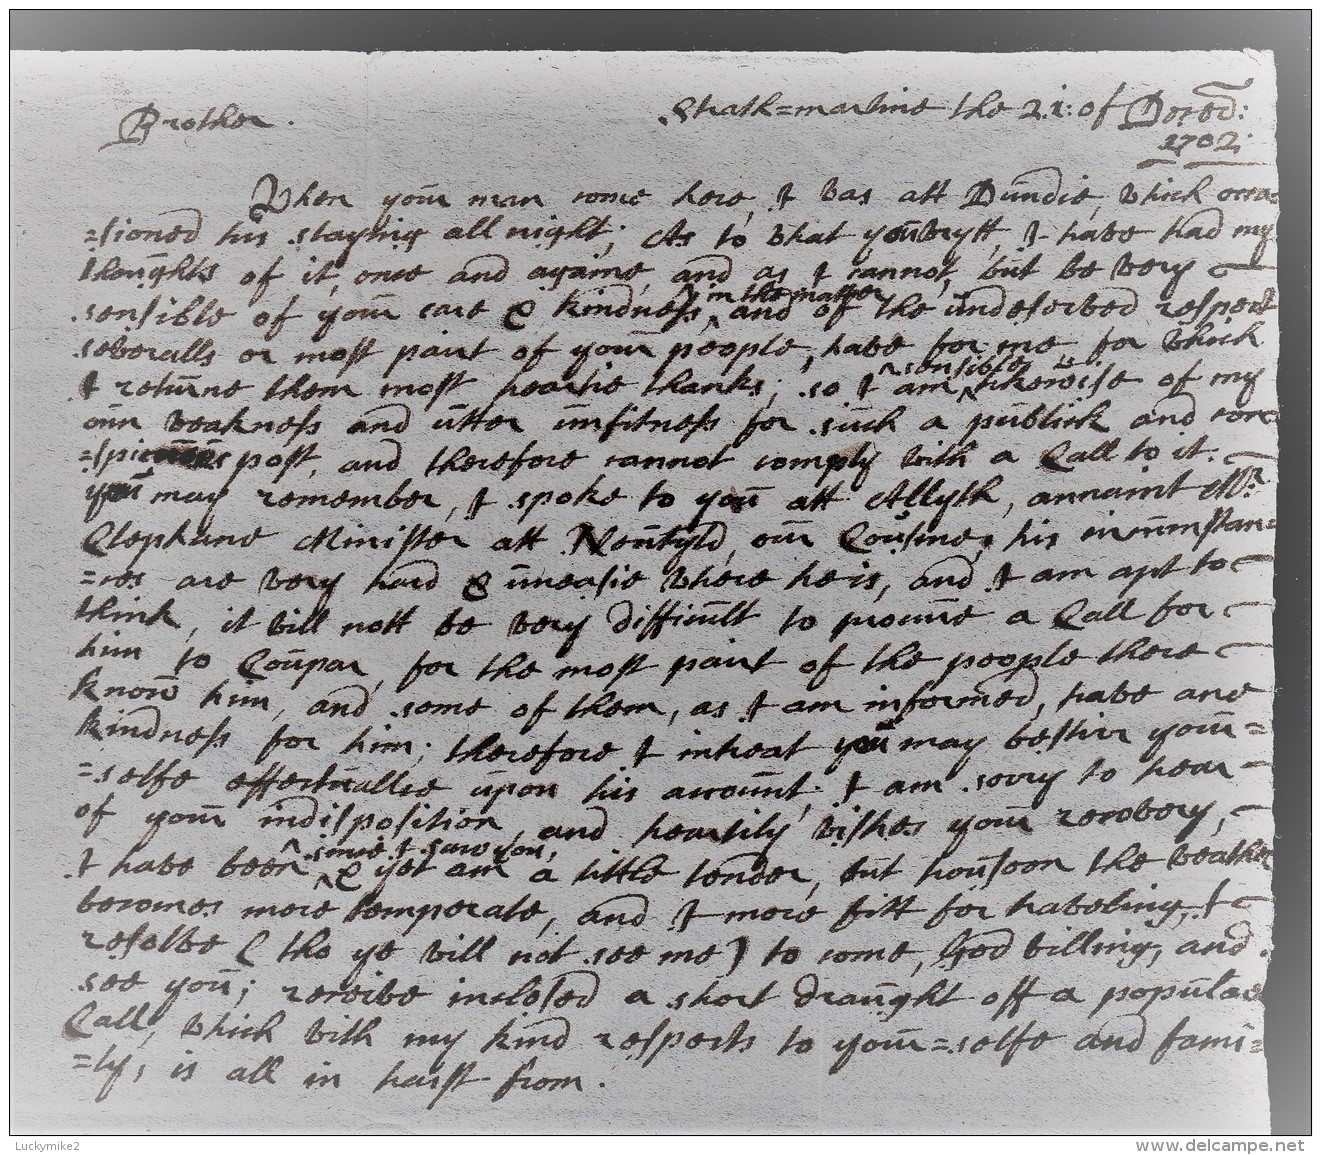 Brother.
Strath=martine the 21: of Deced:
1702;
When your man come here, I was att Dundie, which occa
=sioned his staying all night; As to what you wrytt, I have had my
thoughts of it, once and againe, and as I cannot, but be very
sensible of your care & kindness, in the matter and of the undeserved respect
severalls or most pairt of your people, have for me for which
I returne them most heartie thanks; so I am sensible likeweise of my
oun weakness and utter unfitness for such a publick and con
=spicuous post, and therefore cannot comply with a Call to it.
you may remember, I spoke to you att Allyth, annaint Mr.
Clephane Minister att Neutyld, our Cousine, his circumstan=
=ces are very hard & uneasie where he is, and I am apt to
think, it will nott be very difficult to procure a Call for
him to Coupar, for the most pairt of the people there
know him, and some of them, as I am informed, have ane
kindness for him; therefore I intreat you may bestirr your=
=selfe effectuallie upon his account; I am sorry to hear
of your indisposition, and heartily wishes your recovery,
I have been since I saw you, & yet am a little tender, but houson the weather
becomes more temperate, and I more fitt for traveling, I
resolve (tho ye will not see me) to come, God willing, and
see you; receive inclosed a short draught off a popular
Call, which with my kind respects to your=selfe and fami=
=ly, is all in haist from.
Luckymike2
www.delcampe.net